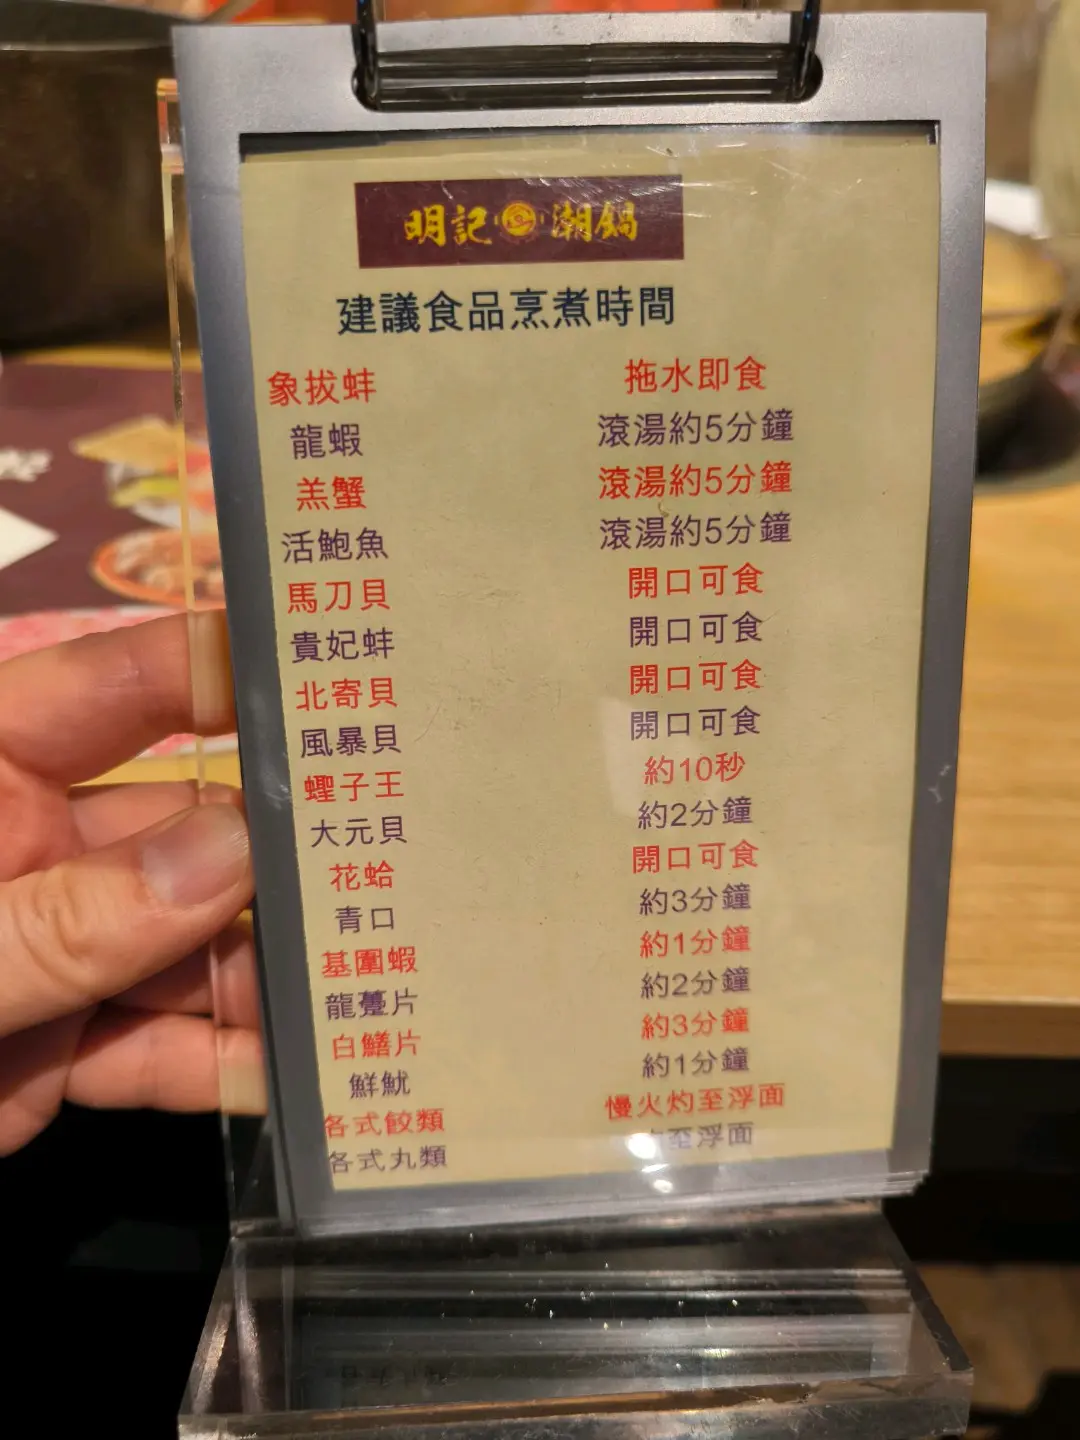 明記 潮鍋
建議食品烹煮時間
象拔蚌 拖水即食
龍蝦 滾湯約5分鐘
羔蟹 滾湯約5分鐘
活鮑魚 滾湯約5分鐘
馬刀貝 開口可食
貴妃蚌 開口可食
北寄貝 開口可食
風暴貝 開口可食
蟶子王 約10秒
大元貝 約2分鐘
花蛤 開口可食
青口 約3分鐘
基圍蝦 約1分鐘
龍躉片 約2分鐘
白鱔片 約3分鐘
鮮魷 約1分鐘
各式餃類 慢火灼至浮面
各式丸類 至浮面